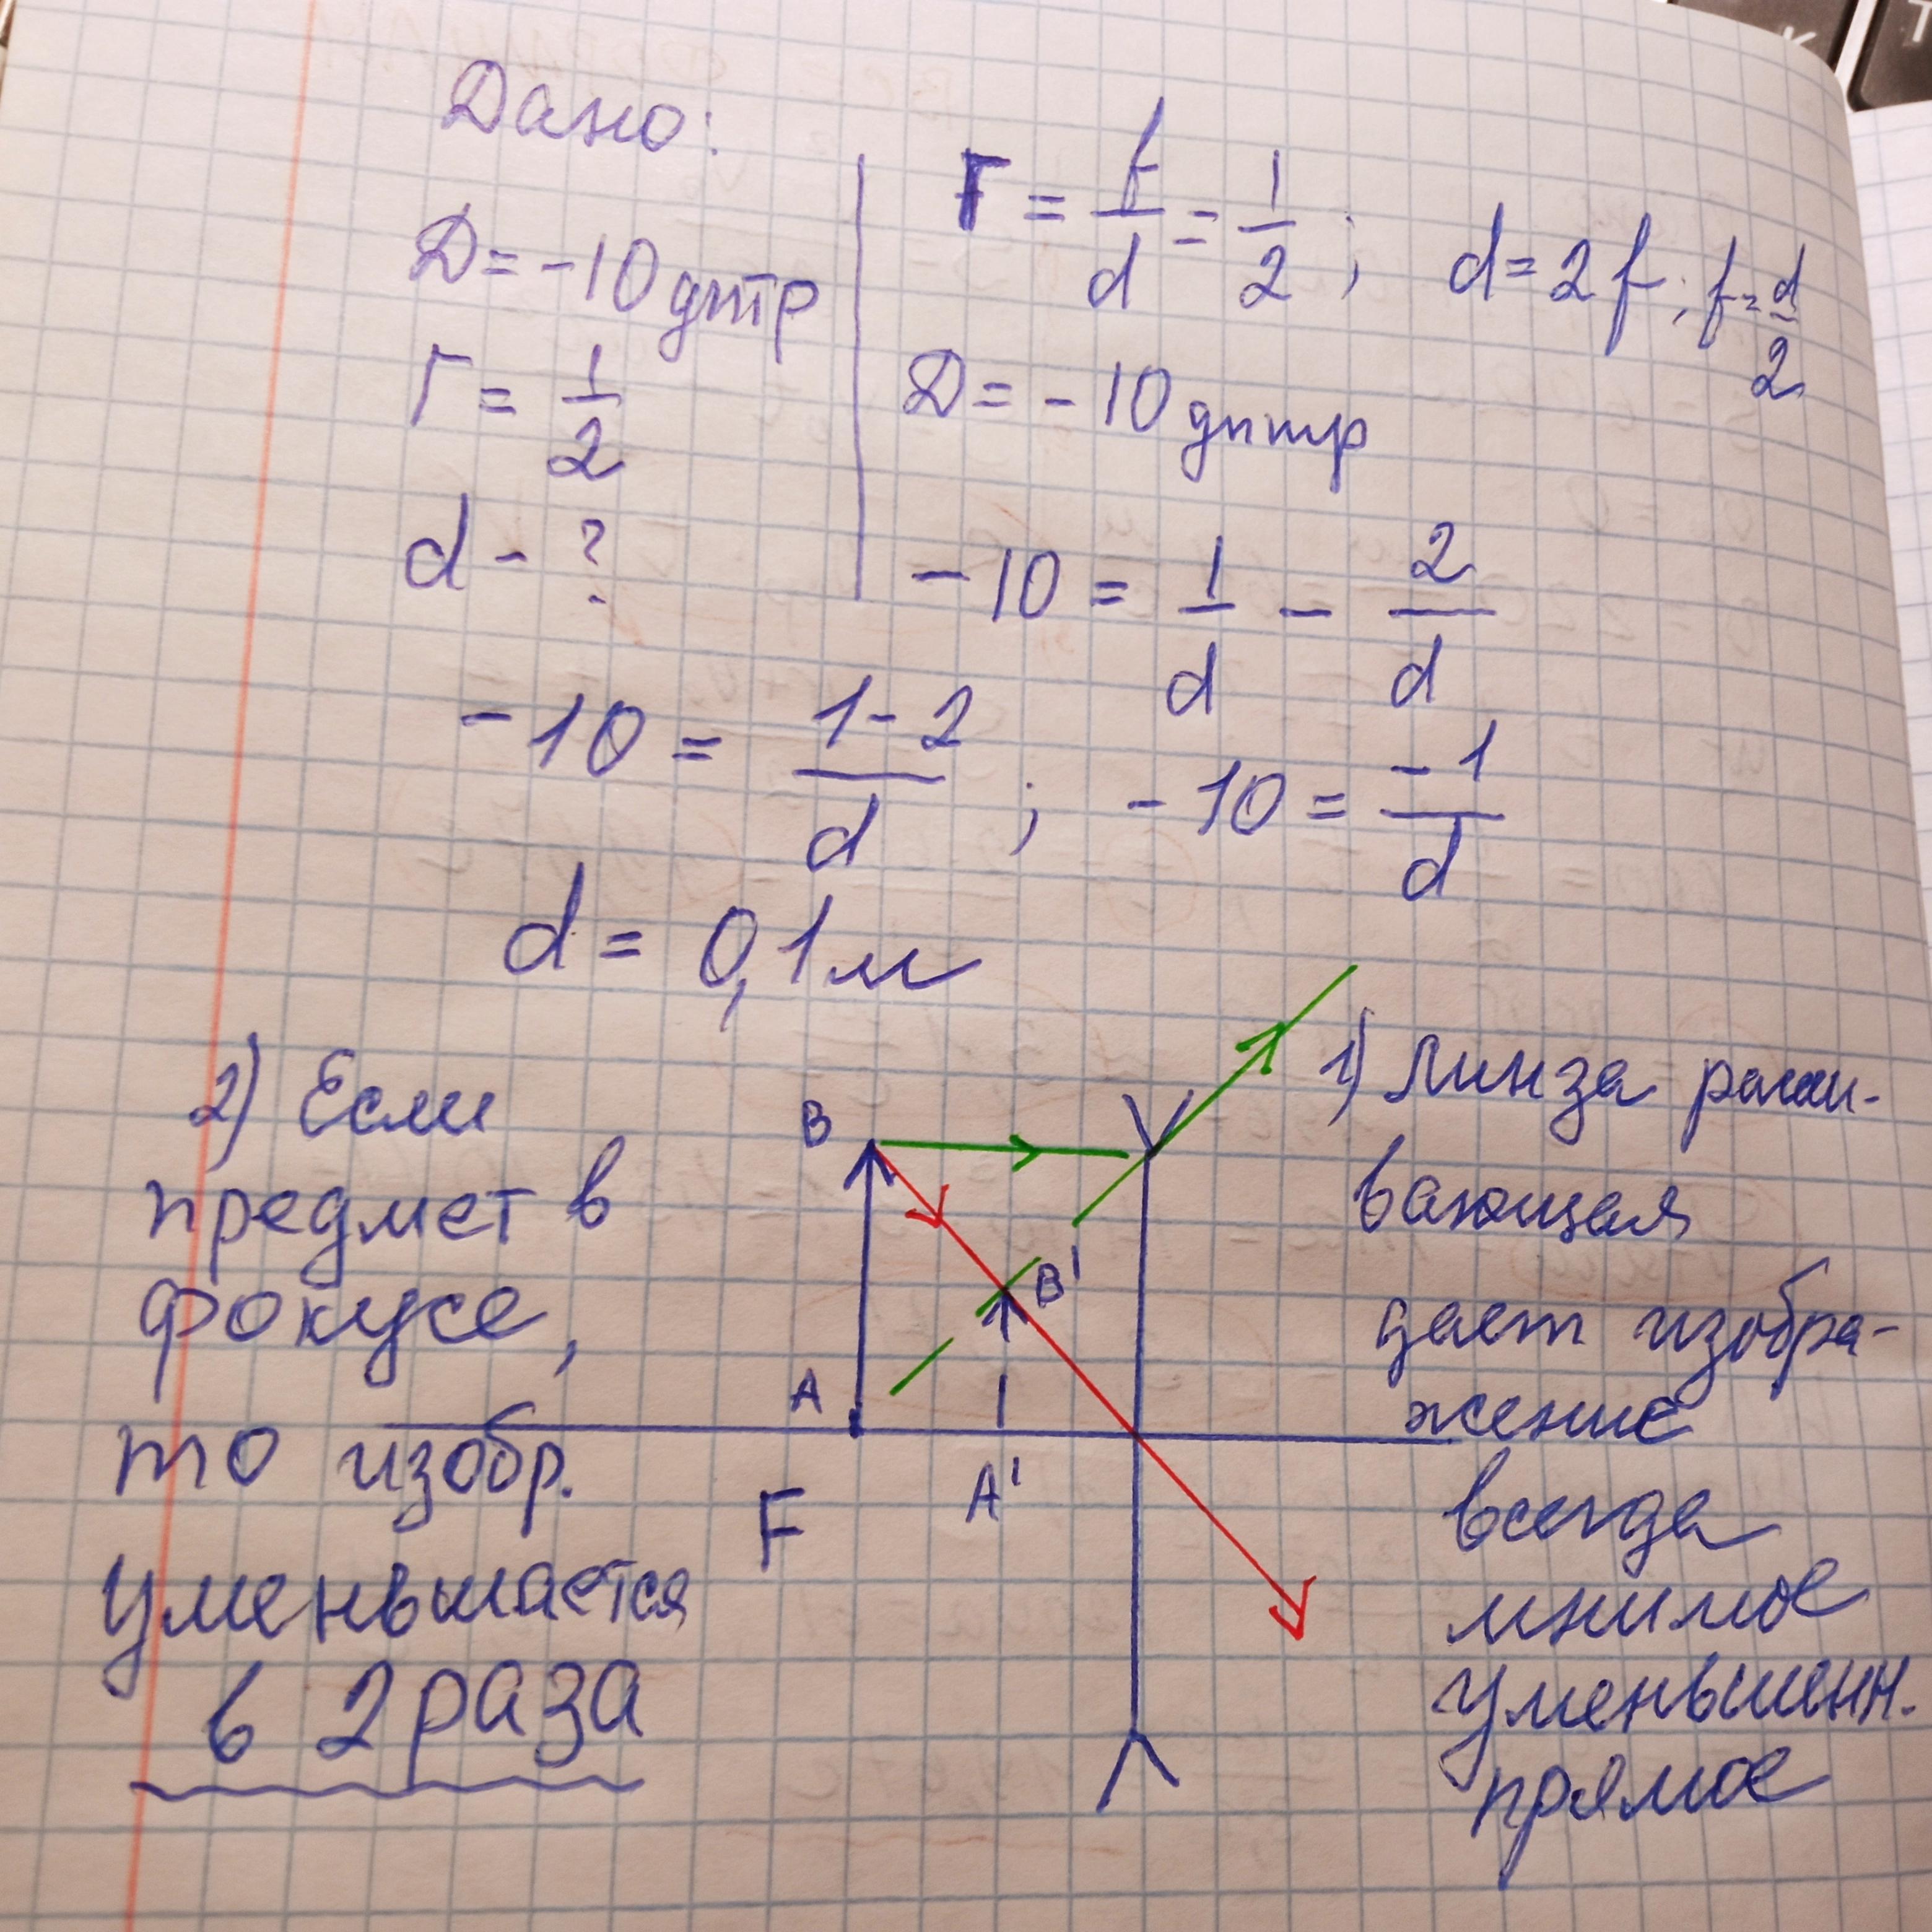 Дано:
D = -10 дптр
Г = 1/2
d - ?
Г = f/d = 1/2 ; d = 2f ; f = d/2
D = -10 дптр
-10 = 1/d - 2/d
-10 = (1-2)/d ; -10 = -1/d
d = 0,1 м
2) Если
предмет в
фокусе,
то изобр.
уменьшается
в 2 раза
B
B'
A
A'
F
1) Линза рассеи-
вающая
дает изобра-
жение
всегда
мнимое
уменьшенн.
прямое